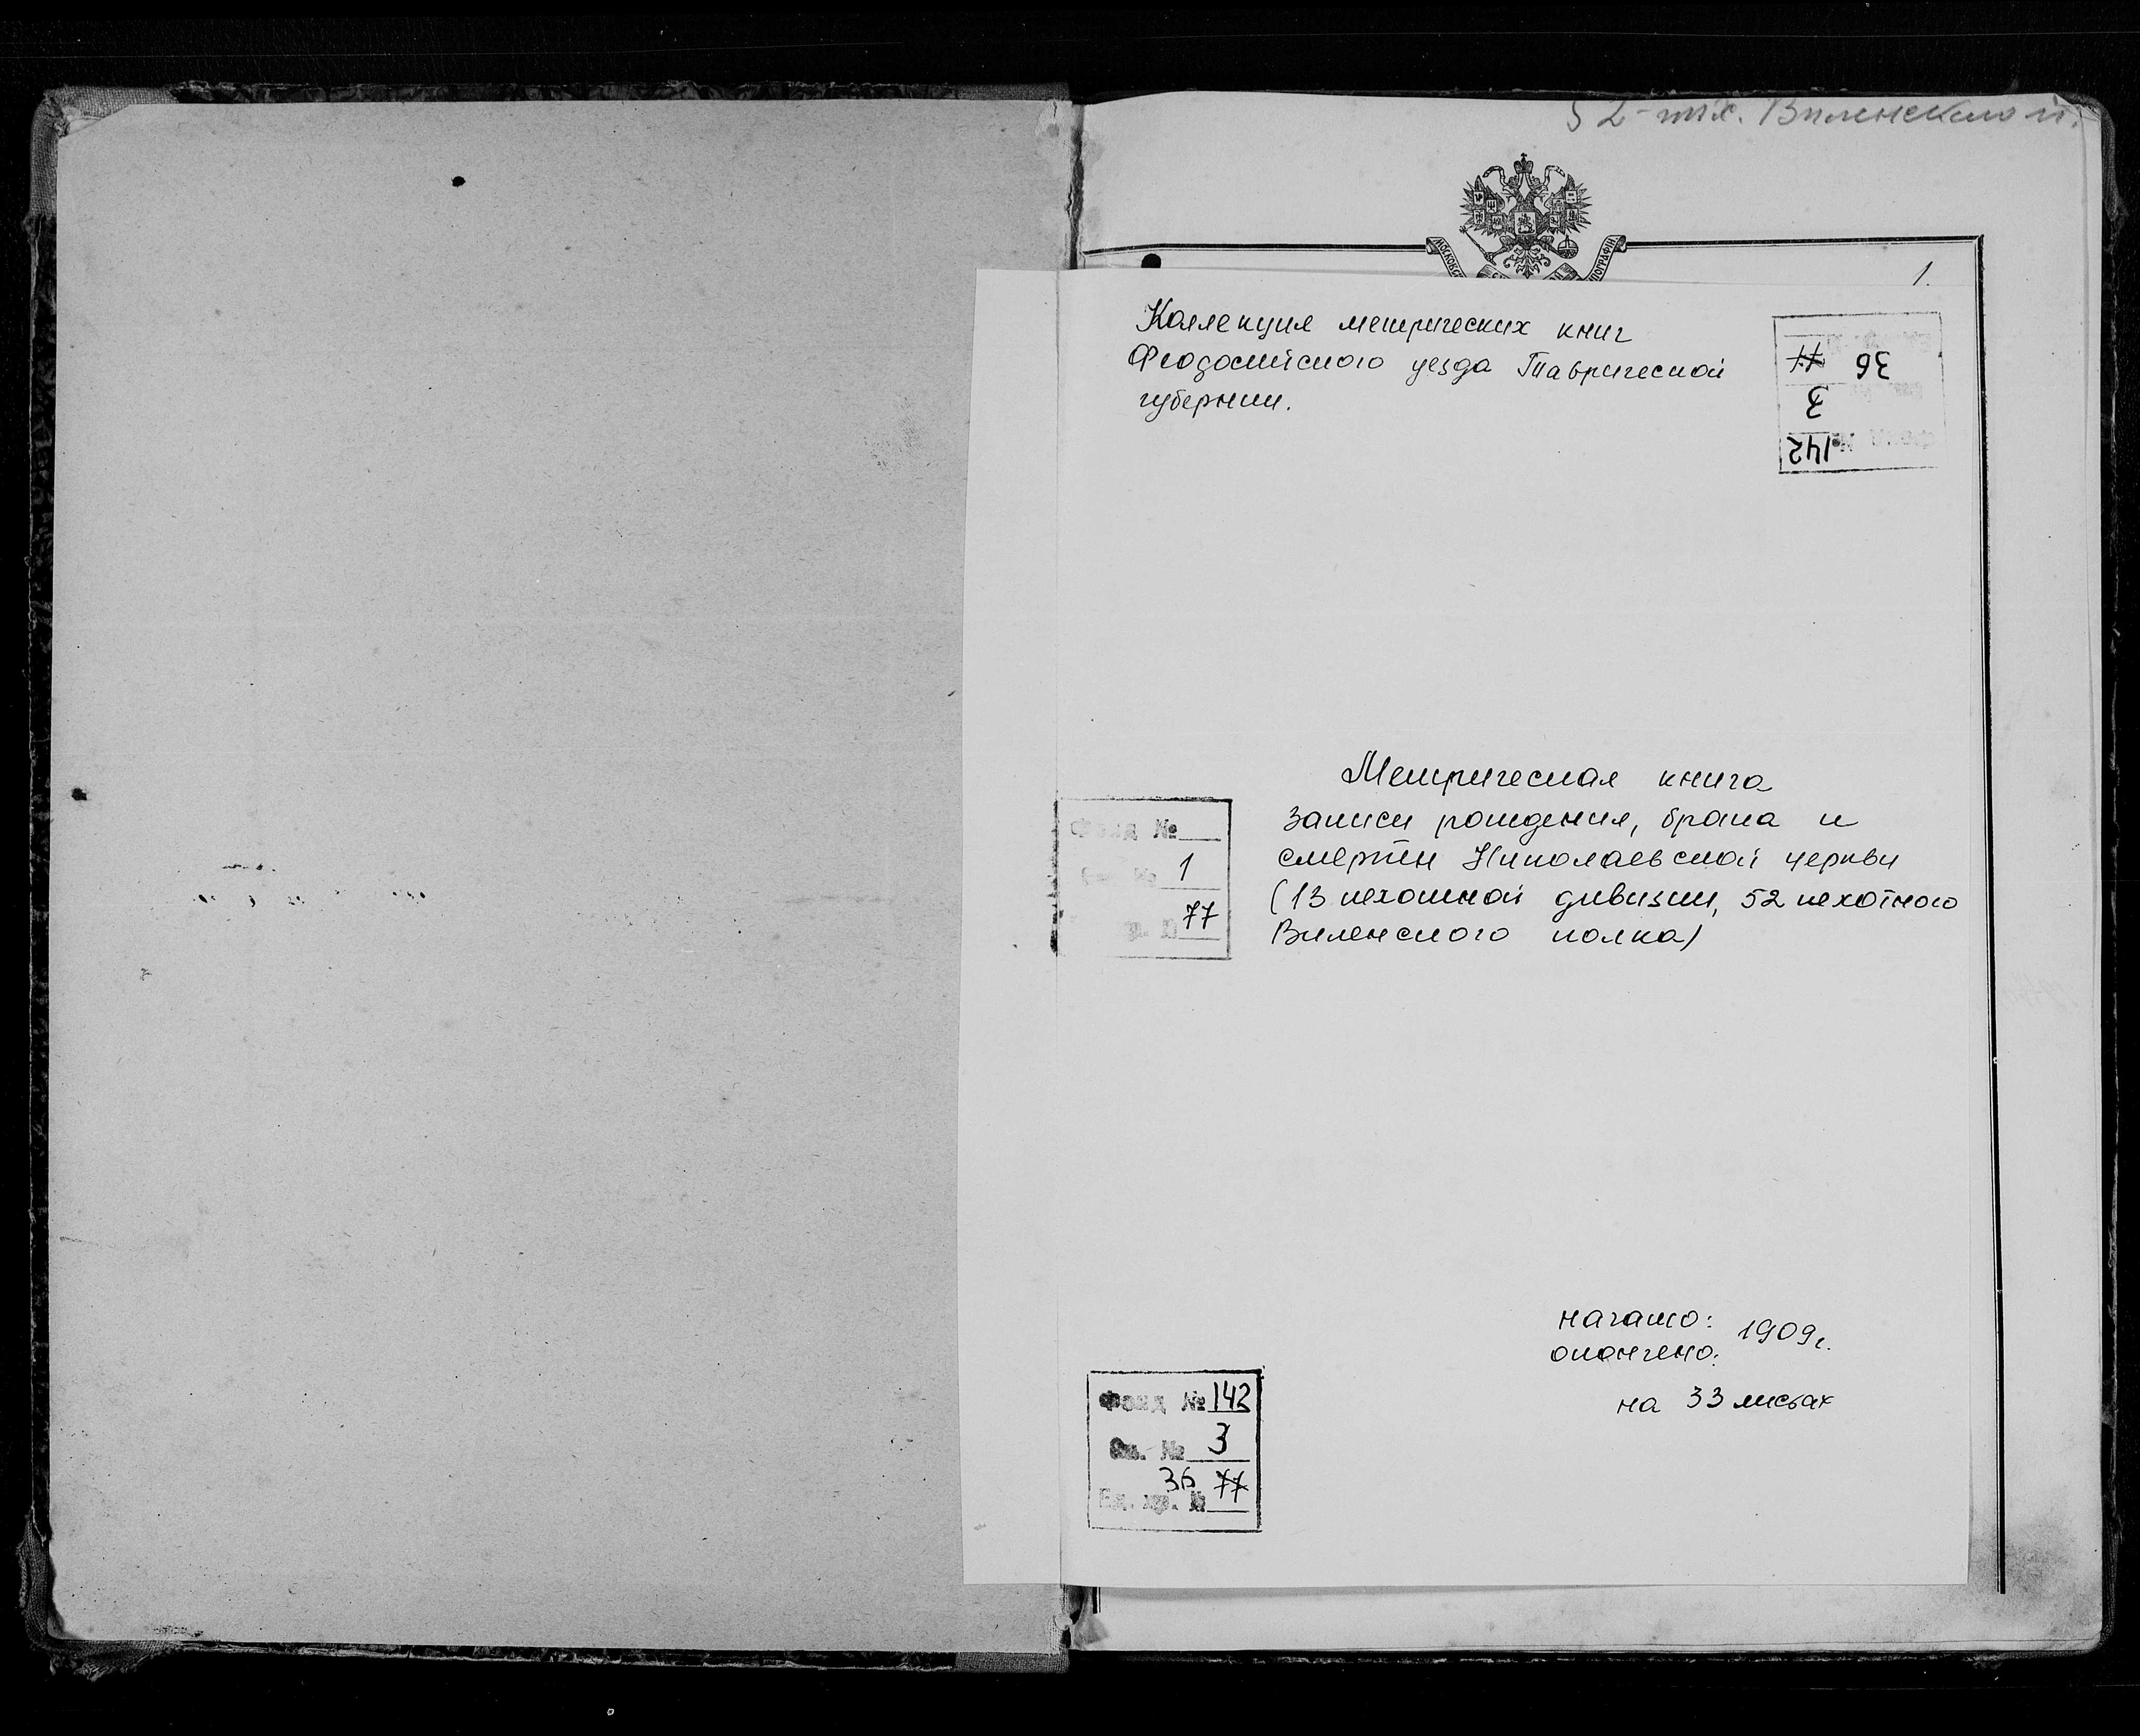 52-пѣх. Виленскаго п.
1.
Коллекция метрических книг
Феодосийского уезда Таврической
губернии.
36 77
3
142
Метрическая книга
записи рождения, брака и
смерти Николаевской церкви
(13 пехотной дивизии, 52 пехотного
Виленского полка)
Фонд №
Оп. № 1
Ед. хр. № 77
начато:
окончено: 1909 г.
на 33 листах
Фонд № 142
Оп. № 3
Ед. хр. № 36 77